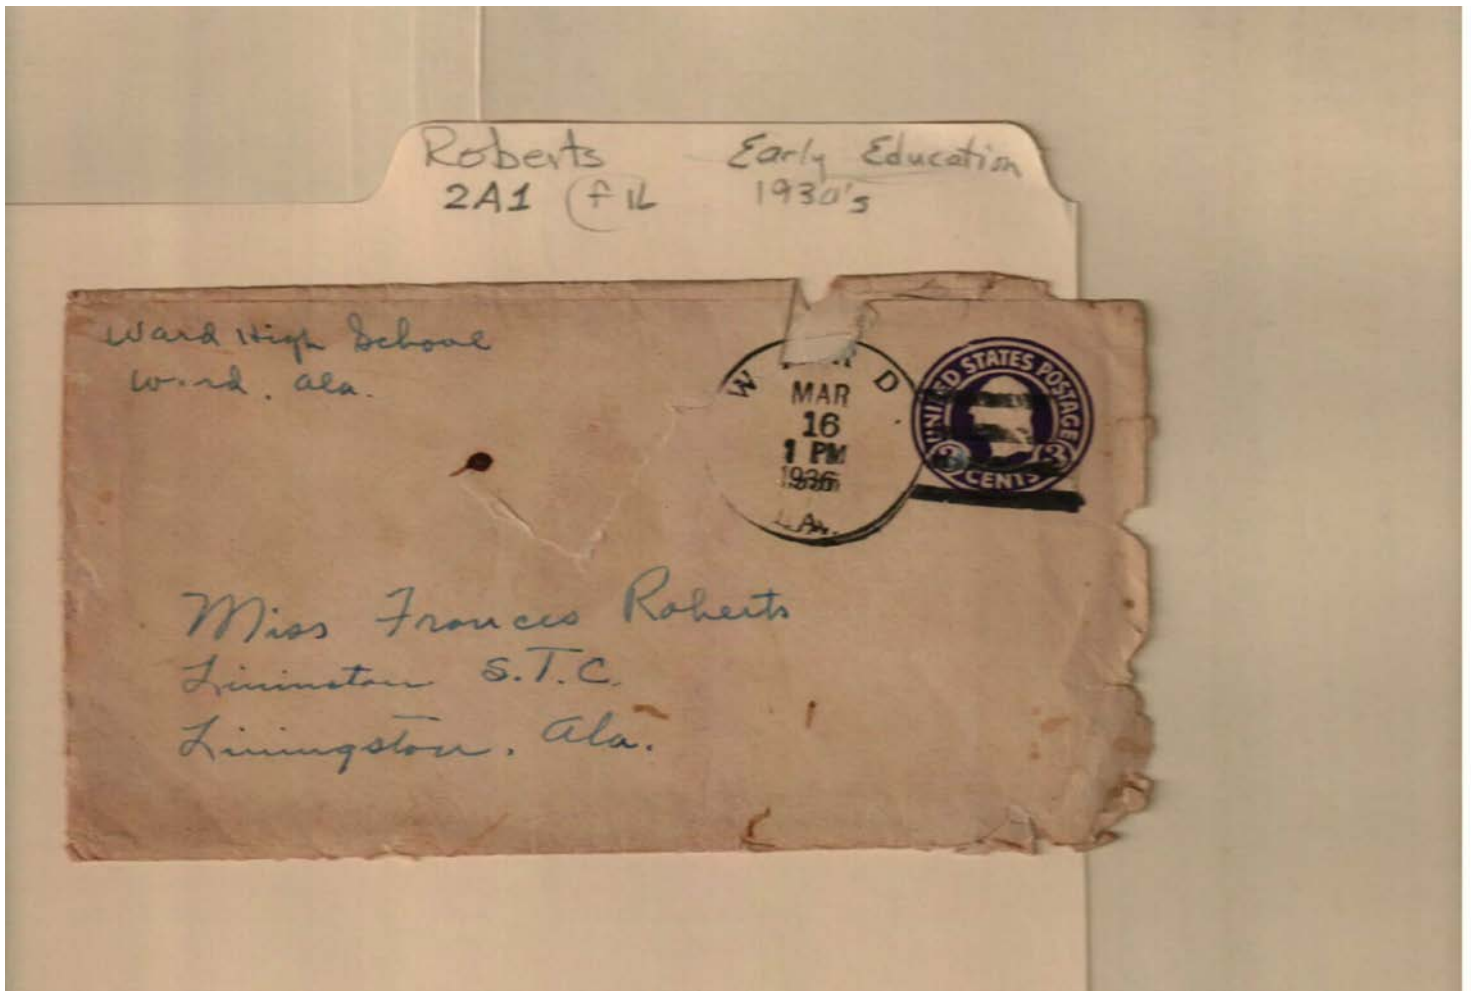 Roberts Early Education
2A1 f1L 1930's
Ward High School
Ward, Ala.
W D
MAR
16
1 PM
1936
LA.
UNITED STATES POSTAGE
3 3
CENTS
Miss Frances Roberts
Livinston S.T.C.
Livingston, Ala.